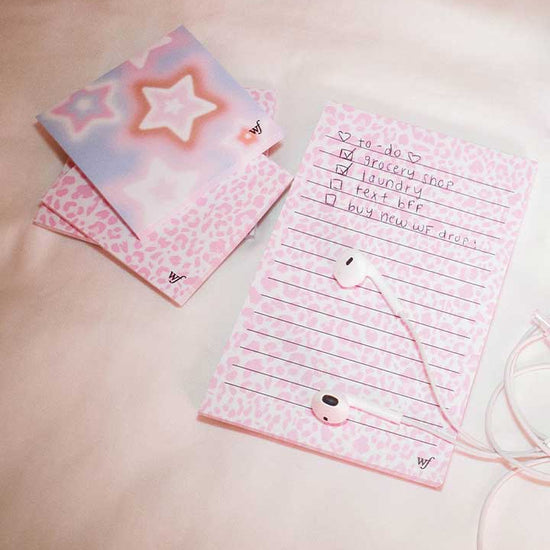 wf
wf
♡ to-do ♡
☑ grocery shop
☑ laundry
☐ text bff
☐ buy new wf drop!
wf